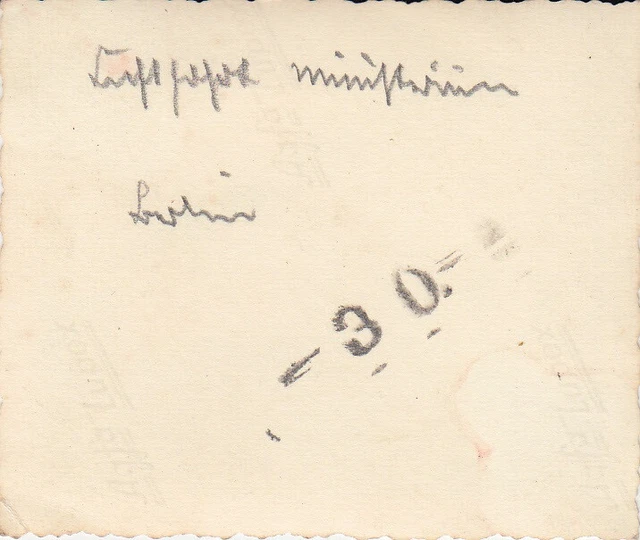 Luftfahrt ministerium
Berlin
30